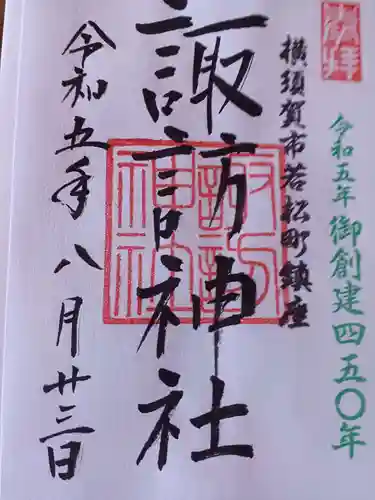 奉拝
令和五年 御創建四五〇年
横須賀市若松町鎮座
諏訪神社
諏訪
神社
令和五年八月廿三日